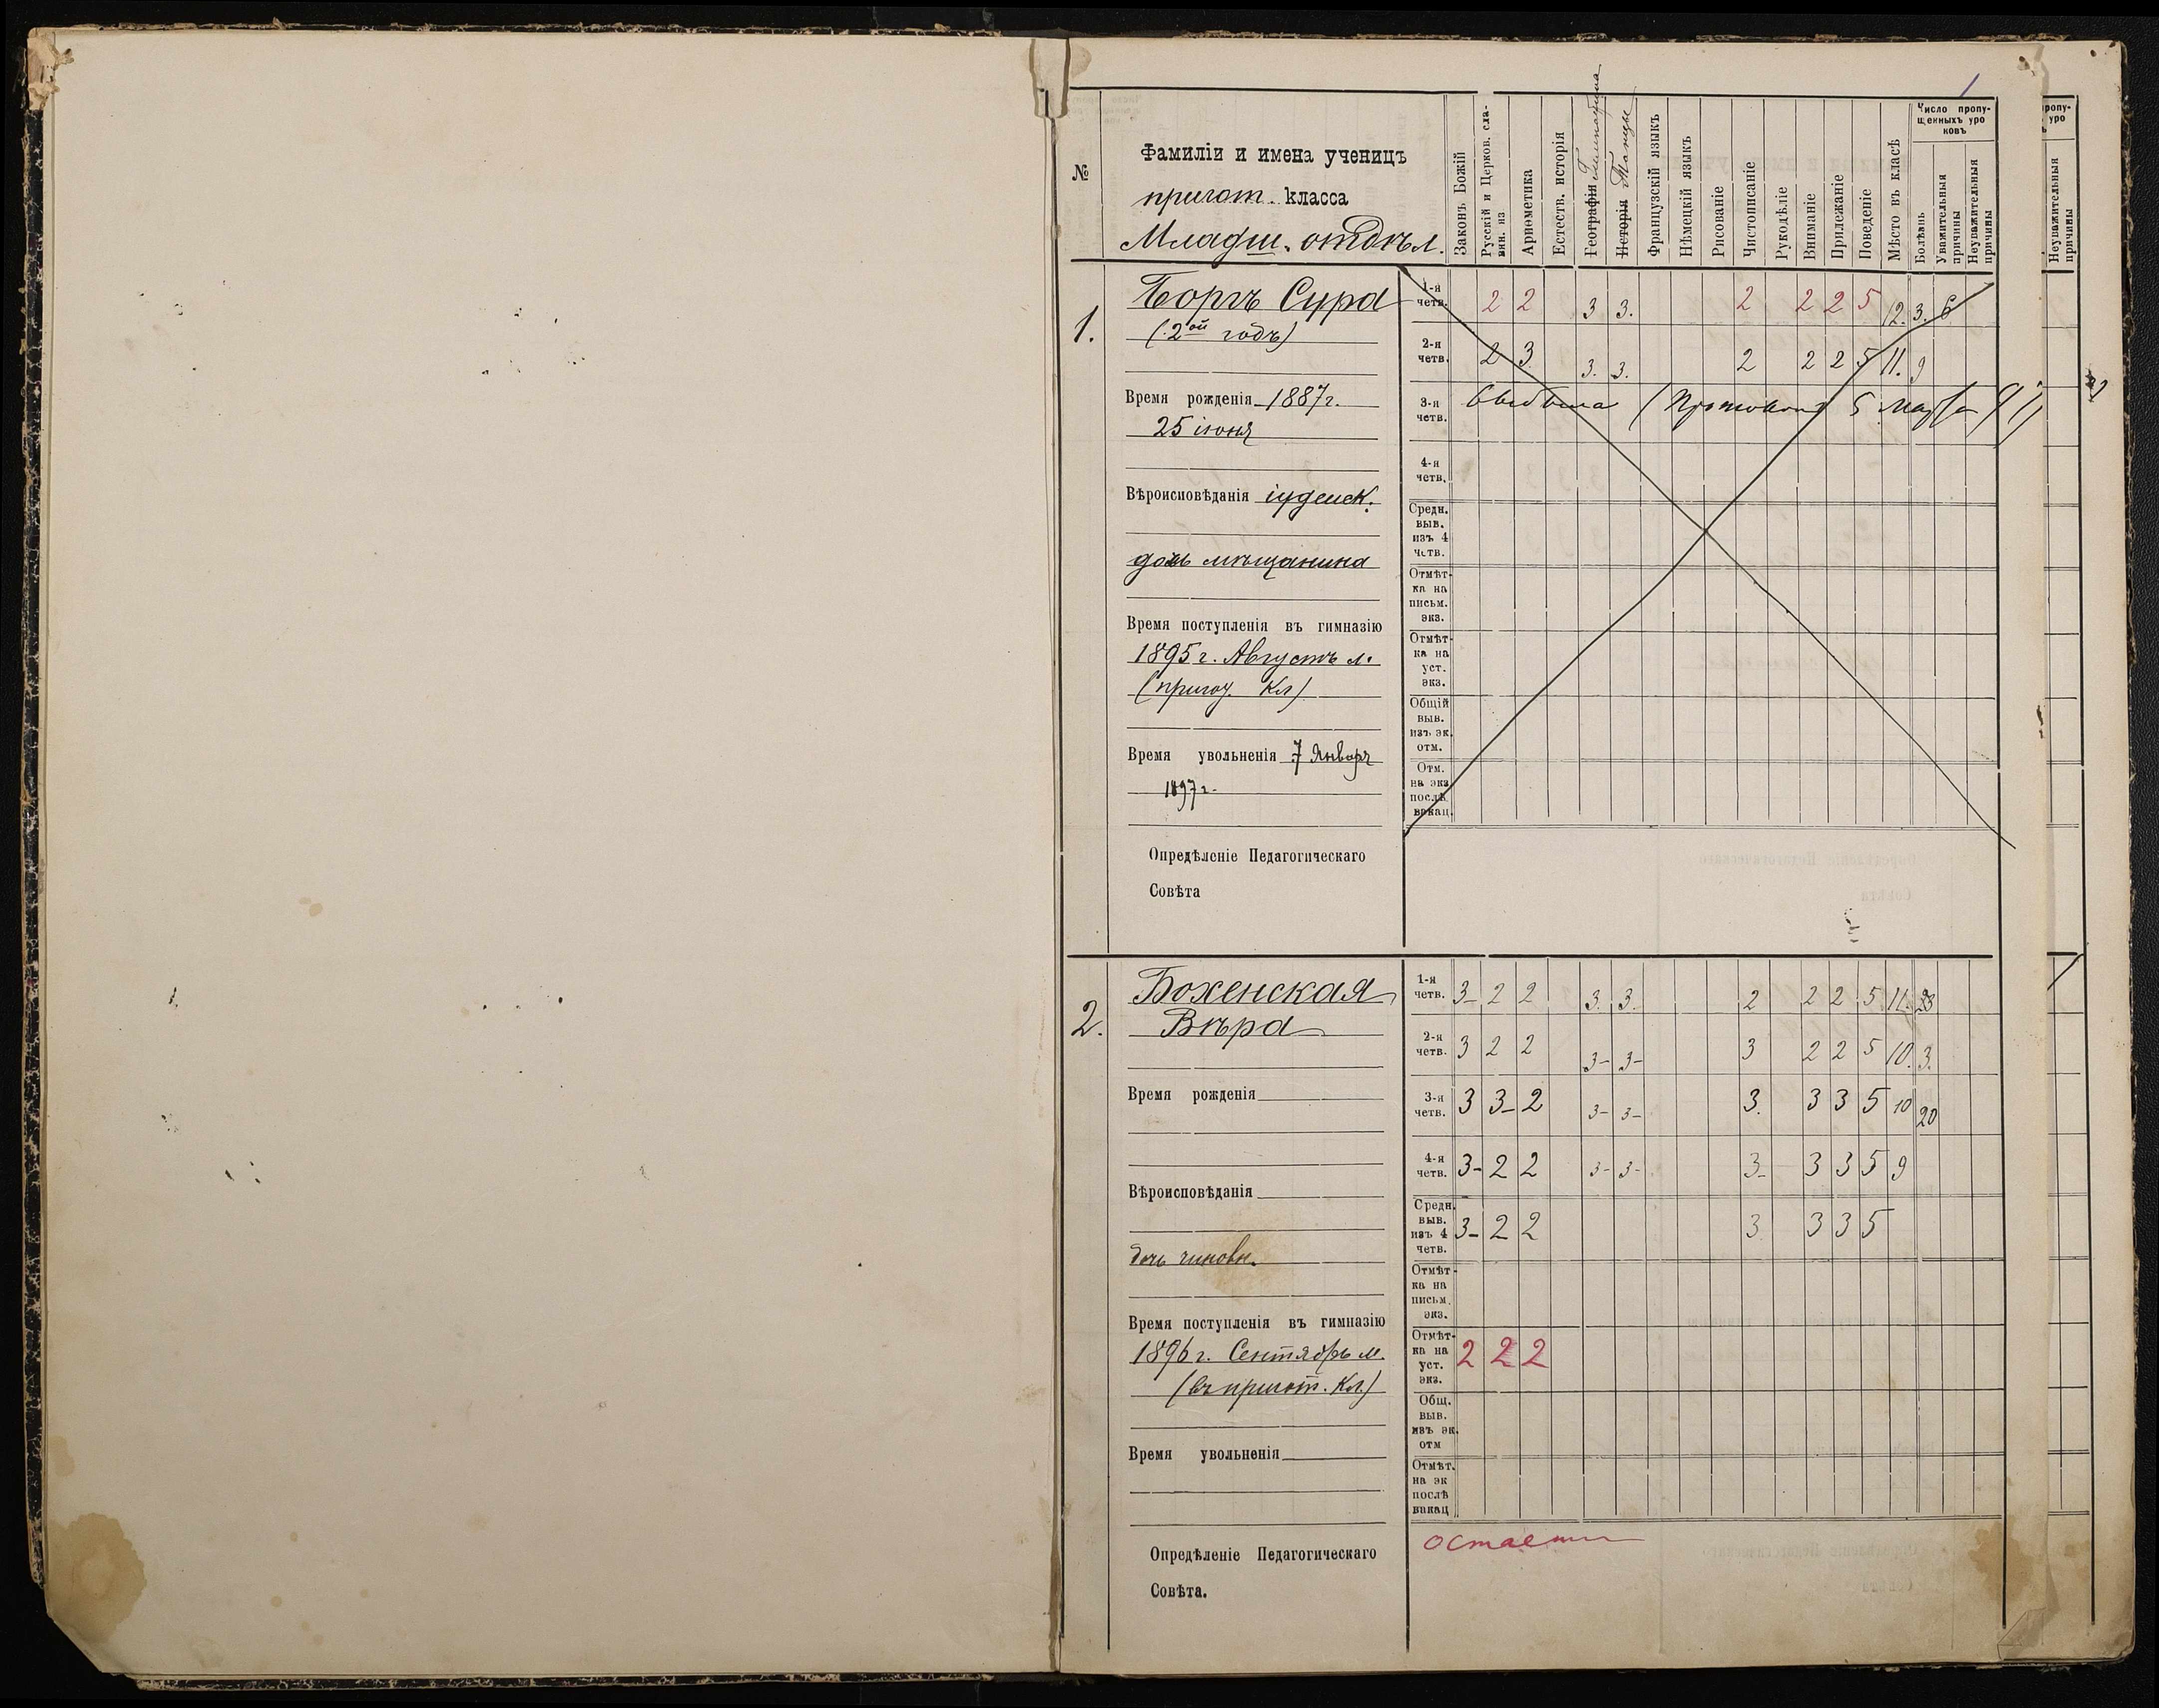 №
Фамиліи и имена ученицъ
пригот. класса
Младш. отдѣл.
Законъ Божій
Русскій и Церков. сла-
вян. яз
Ариѳметика
Естеств. исторія
Географія Гимнастика
Исторія Танцы
Французскій языкъ
Нѣмецкій языкъ
Рисованіе
Чистописаніе
Рукодѣліе
Вниманіе
Прилежаніе
Поведеніе
Мѣсто въ класѣ
Число пропу-
щенныхъ уро
ковъ
Болѣзнь
Уважительныя
причины
Неуважительныя
причины
1.
Боргъ Сура
(2ой годъ)
Время рожденія 1887г.
25 іюня
Вѣроисповѣданія іудейск.
дочь мѣщанина
Время поступленія въ гимназію
1895 г. Августъ м.
(пригот. Кл)
Время увольненія 7 Январ
1897 г.
Опредѣленіе Педагогическаго
Совѣта
1-я
четв. 2 2 3 3. 2 2 2 5 12. 3. 6
2-я
четв. 2 3 3. 3. 2 2 2 5 11. 9
3-я
четв. выбыла (Протоколъ 5 Марта
4-я
четв.
Средн.
выв.
изъ 4
четв.
Отмѣт-
ка на
письм.
экз.
Отмѣт-
ка на
уст.
экз.
Общій
выв.
изъ эк.
отм.
Отм.
на экз
послѣ
вакац.
2.
Боженская
Вѣра
Время рожденія
Вѣроисповѣданія
дочь чиновн.
Время поступленія въ гимназію
1896 г. Сентябрь м.
(въ пригот. Кл)
Время увольненія
Опредѣленіе Педагогическаго
Совѣта.
1-я
четв. 3- 2 2 3. 3. 2 2 2 5 11. 23
2-я
четв. 3 2 2 3- 3- 3 2 2 5 10. 3.
3-я
четв. 3 3- 2 3- 3- 3. 3 3 5 10 20
4-я
четв. 3- 2 2 3- 3- 3- 3 3 5 9
Средн.
выв.
изъ 4
четв. 3- 2 2 3 3 3 5
Отмѣт-
ка на
письм.
экз.
Отмѣт-
ка на
уст.
экз. 2 2 2
Общ.
выв.
изъ эк.
отм
Отмѣт.
на эк
послѣ
вакац
остается
ропу-
уро
ъ
Неуважительныя
причины